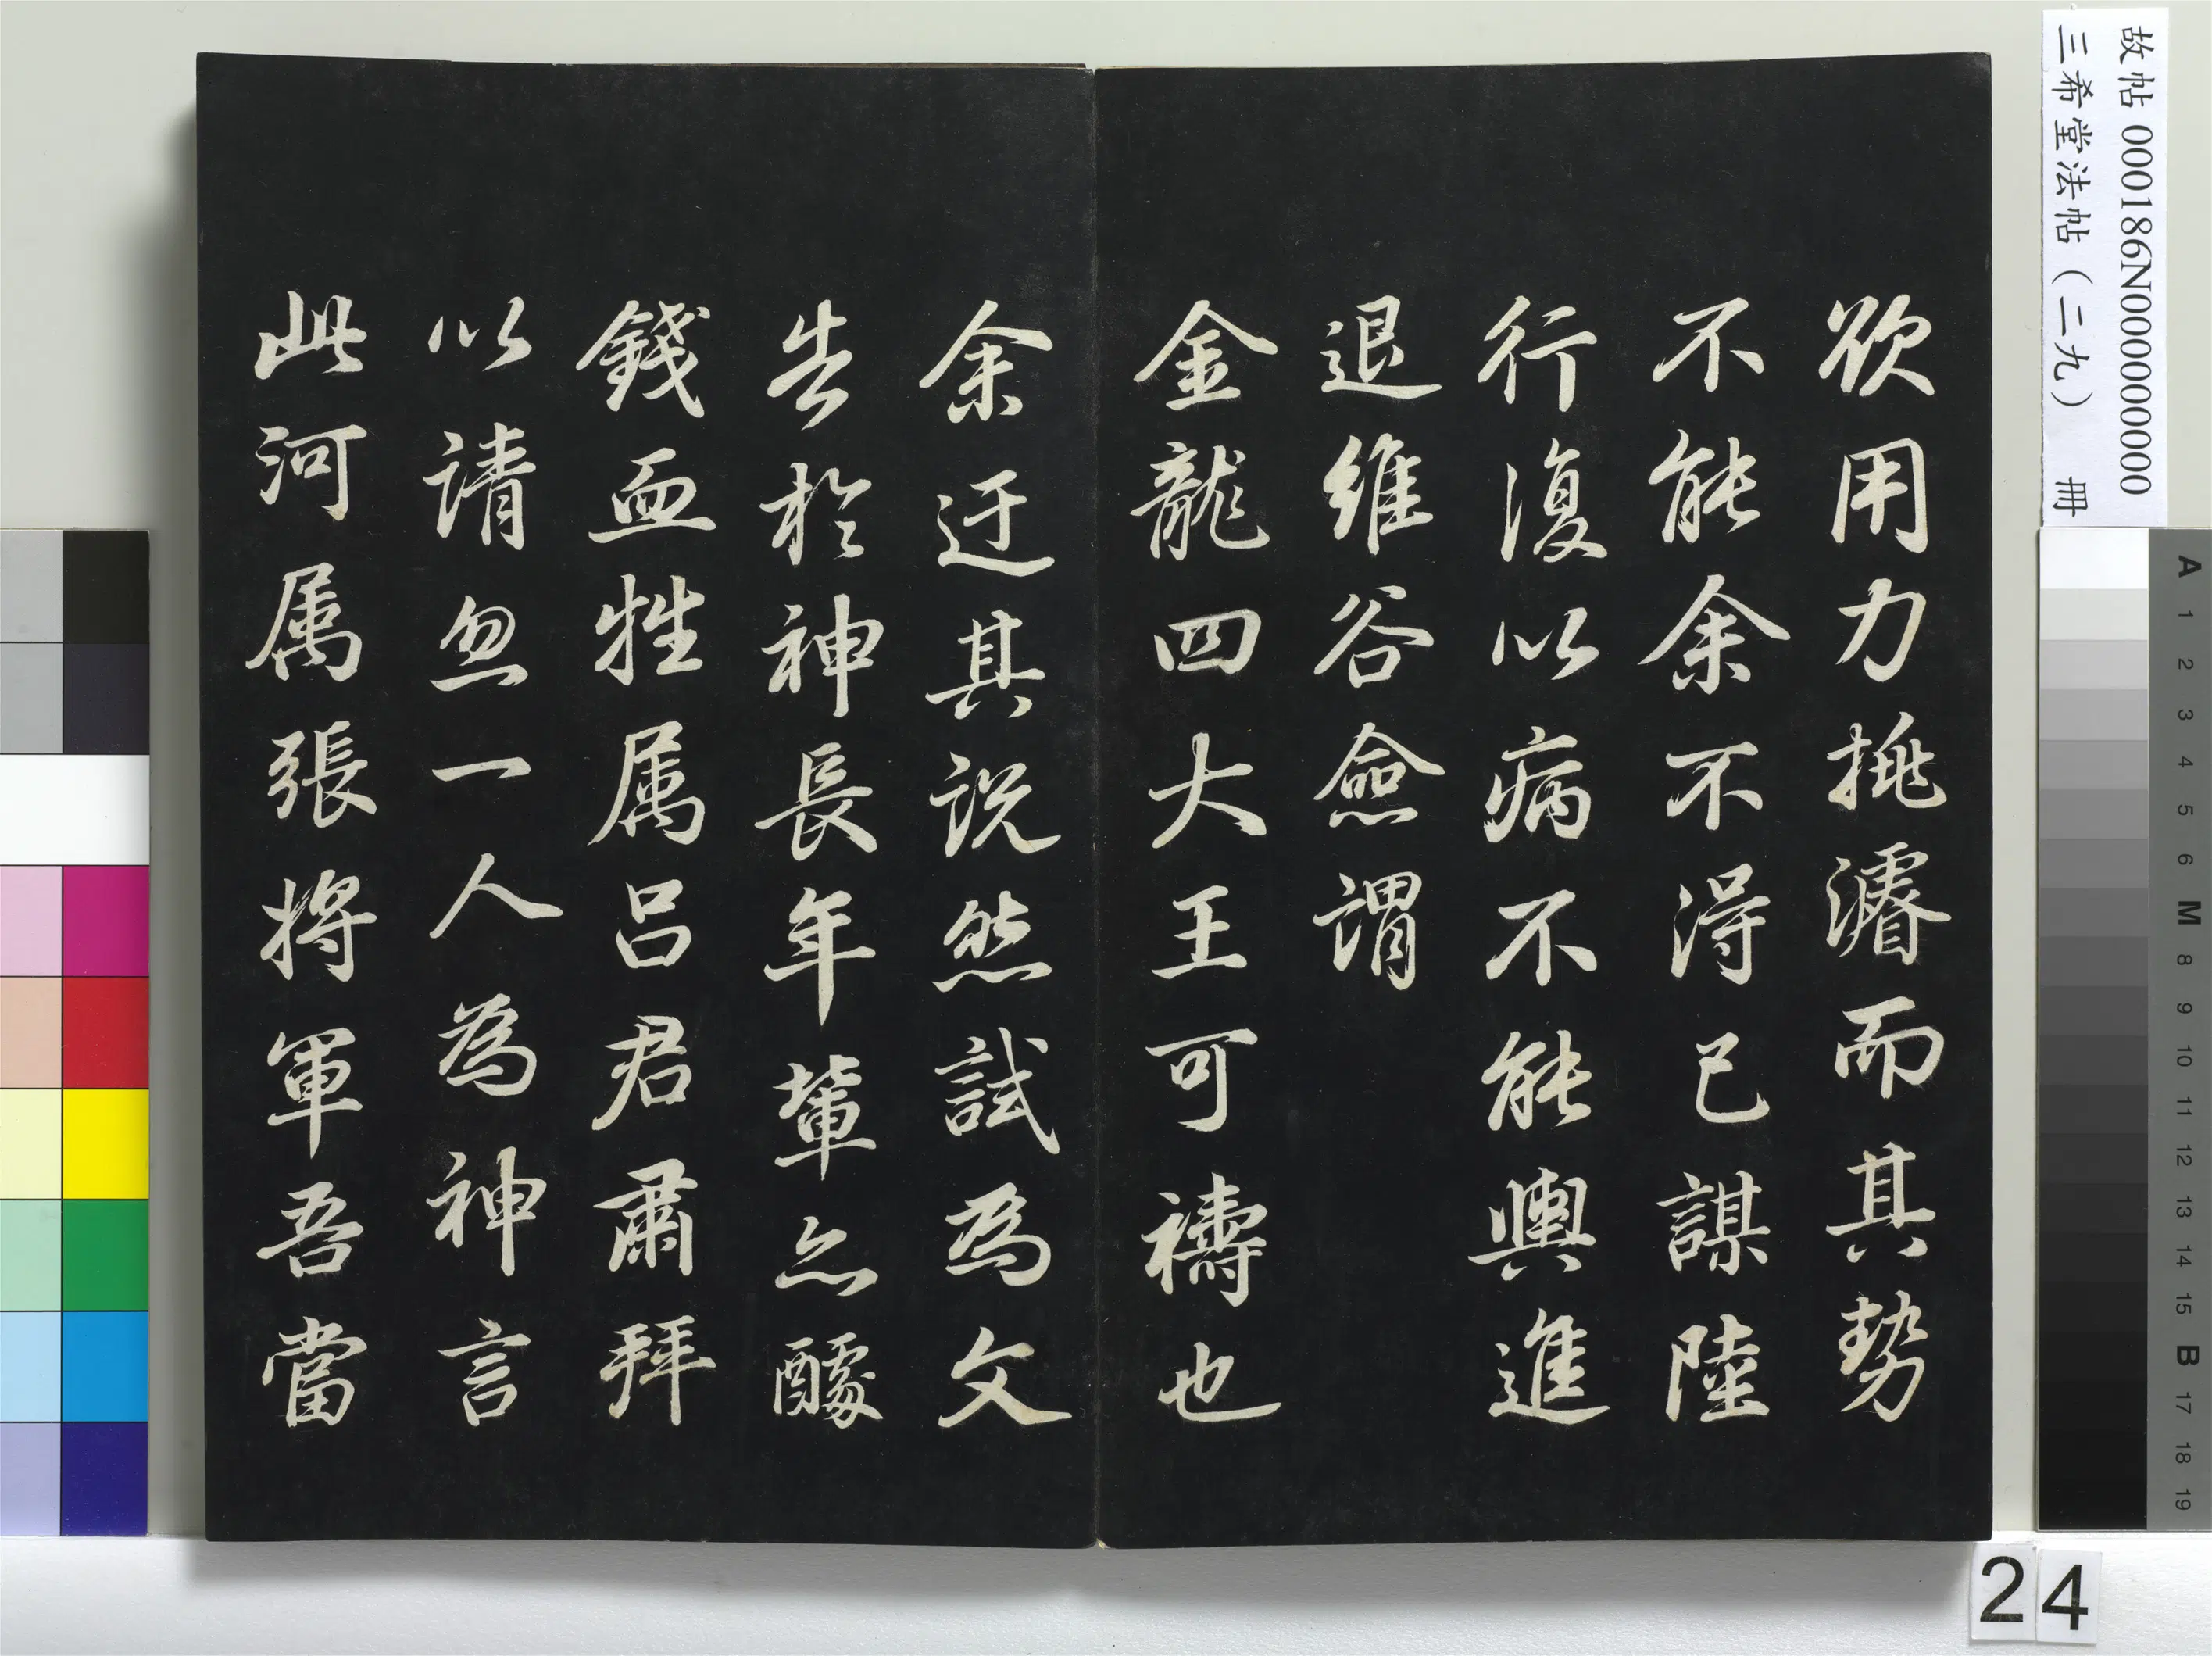 欲用力挑濬而其勢
不能余不得已謀陸
行復以病不能輿進
退維谷僉謂
金龍四大王可禱也
余迂其説然試為文
告於神長年輩亦醵
錢血牲属呂君肅拜
以請忽一人為神言
此河属張將軍吾當
故帖 000186N000000000
三希堂法帖（二九） 冊
A 1 2 3 4 5 6 M 8 9 10 11 12 13 14 15 B 17 18 19
24